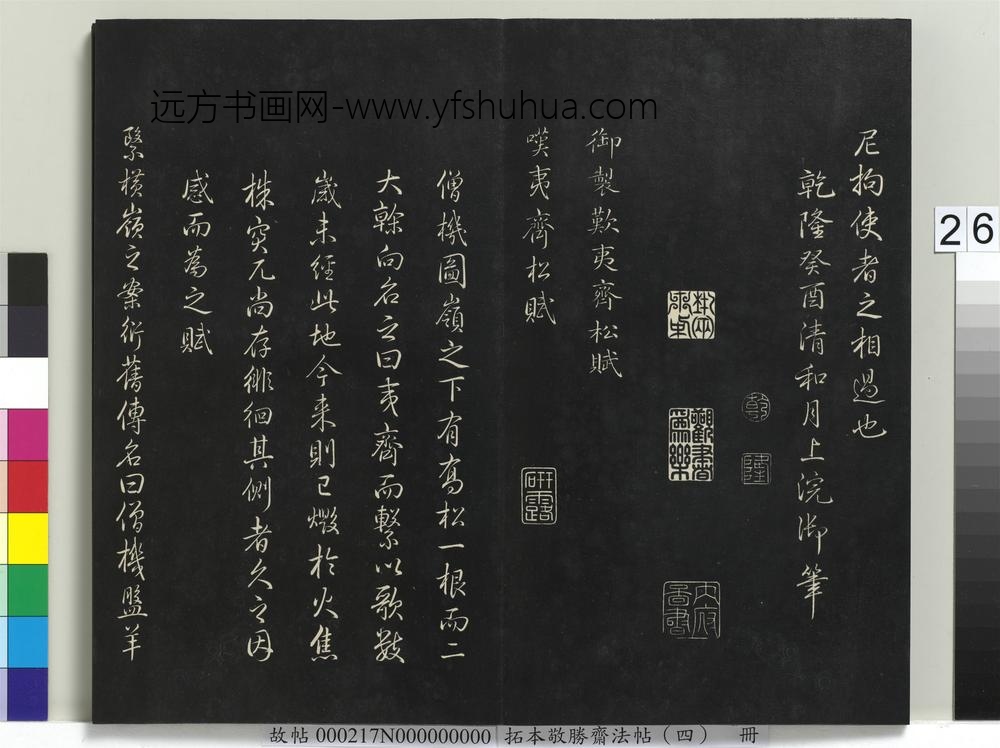 远方书画网-www.yfshuhua.com
尼拘使者之相過也
乾隆癸酉清和月上浣御筆
乾
隆
觀書爲樂
內府書
御製歎夷齊松賦
嘆夷齊松賦
研露
僧機圖嶺之下有喬松一根而二
大榦向名之曰夷齊而繫以歌數
歲未經此地今来則已燬於火焦
株突兀尚存徘徊其側者久之因
感而為之賦
繄橫嶺之案衍舊傳名曰僧機盤羊
26
故帖 000217N000000000 拓本敬勝齋法帖（四） 冊